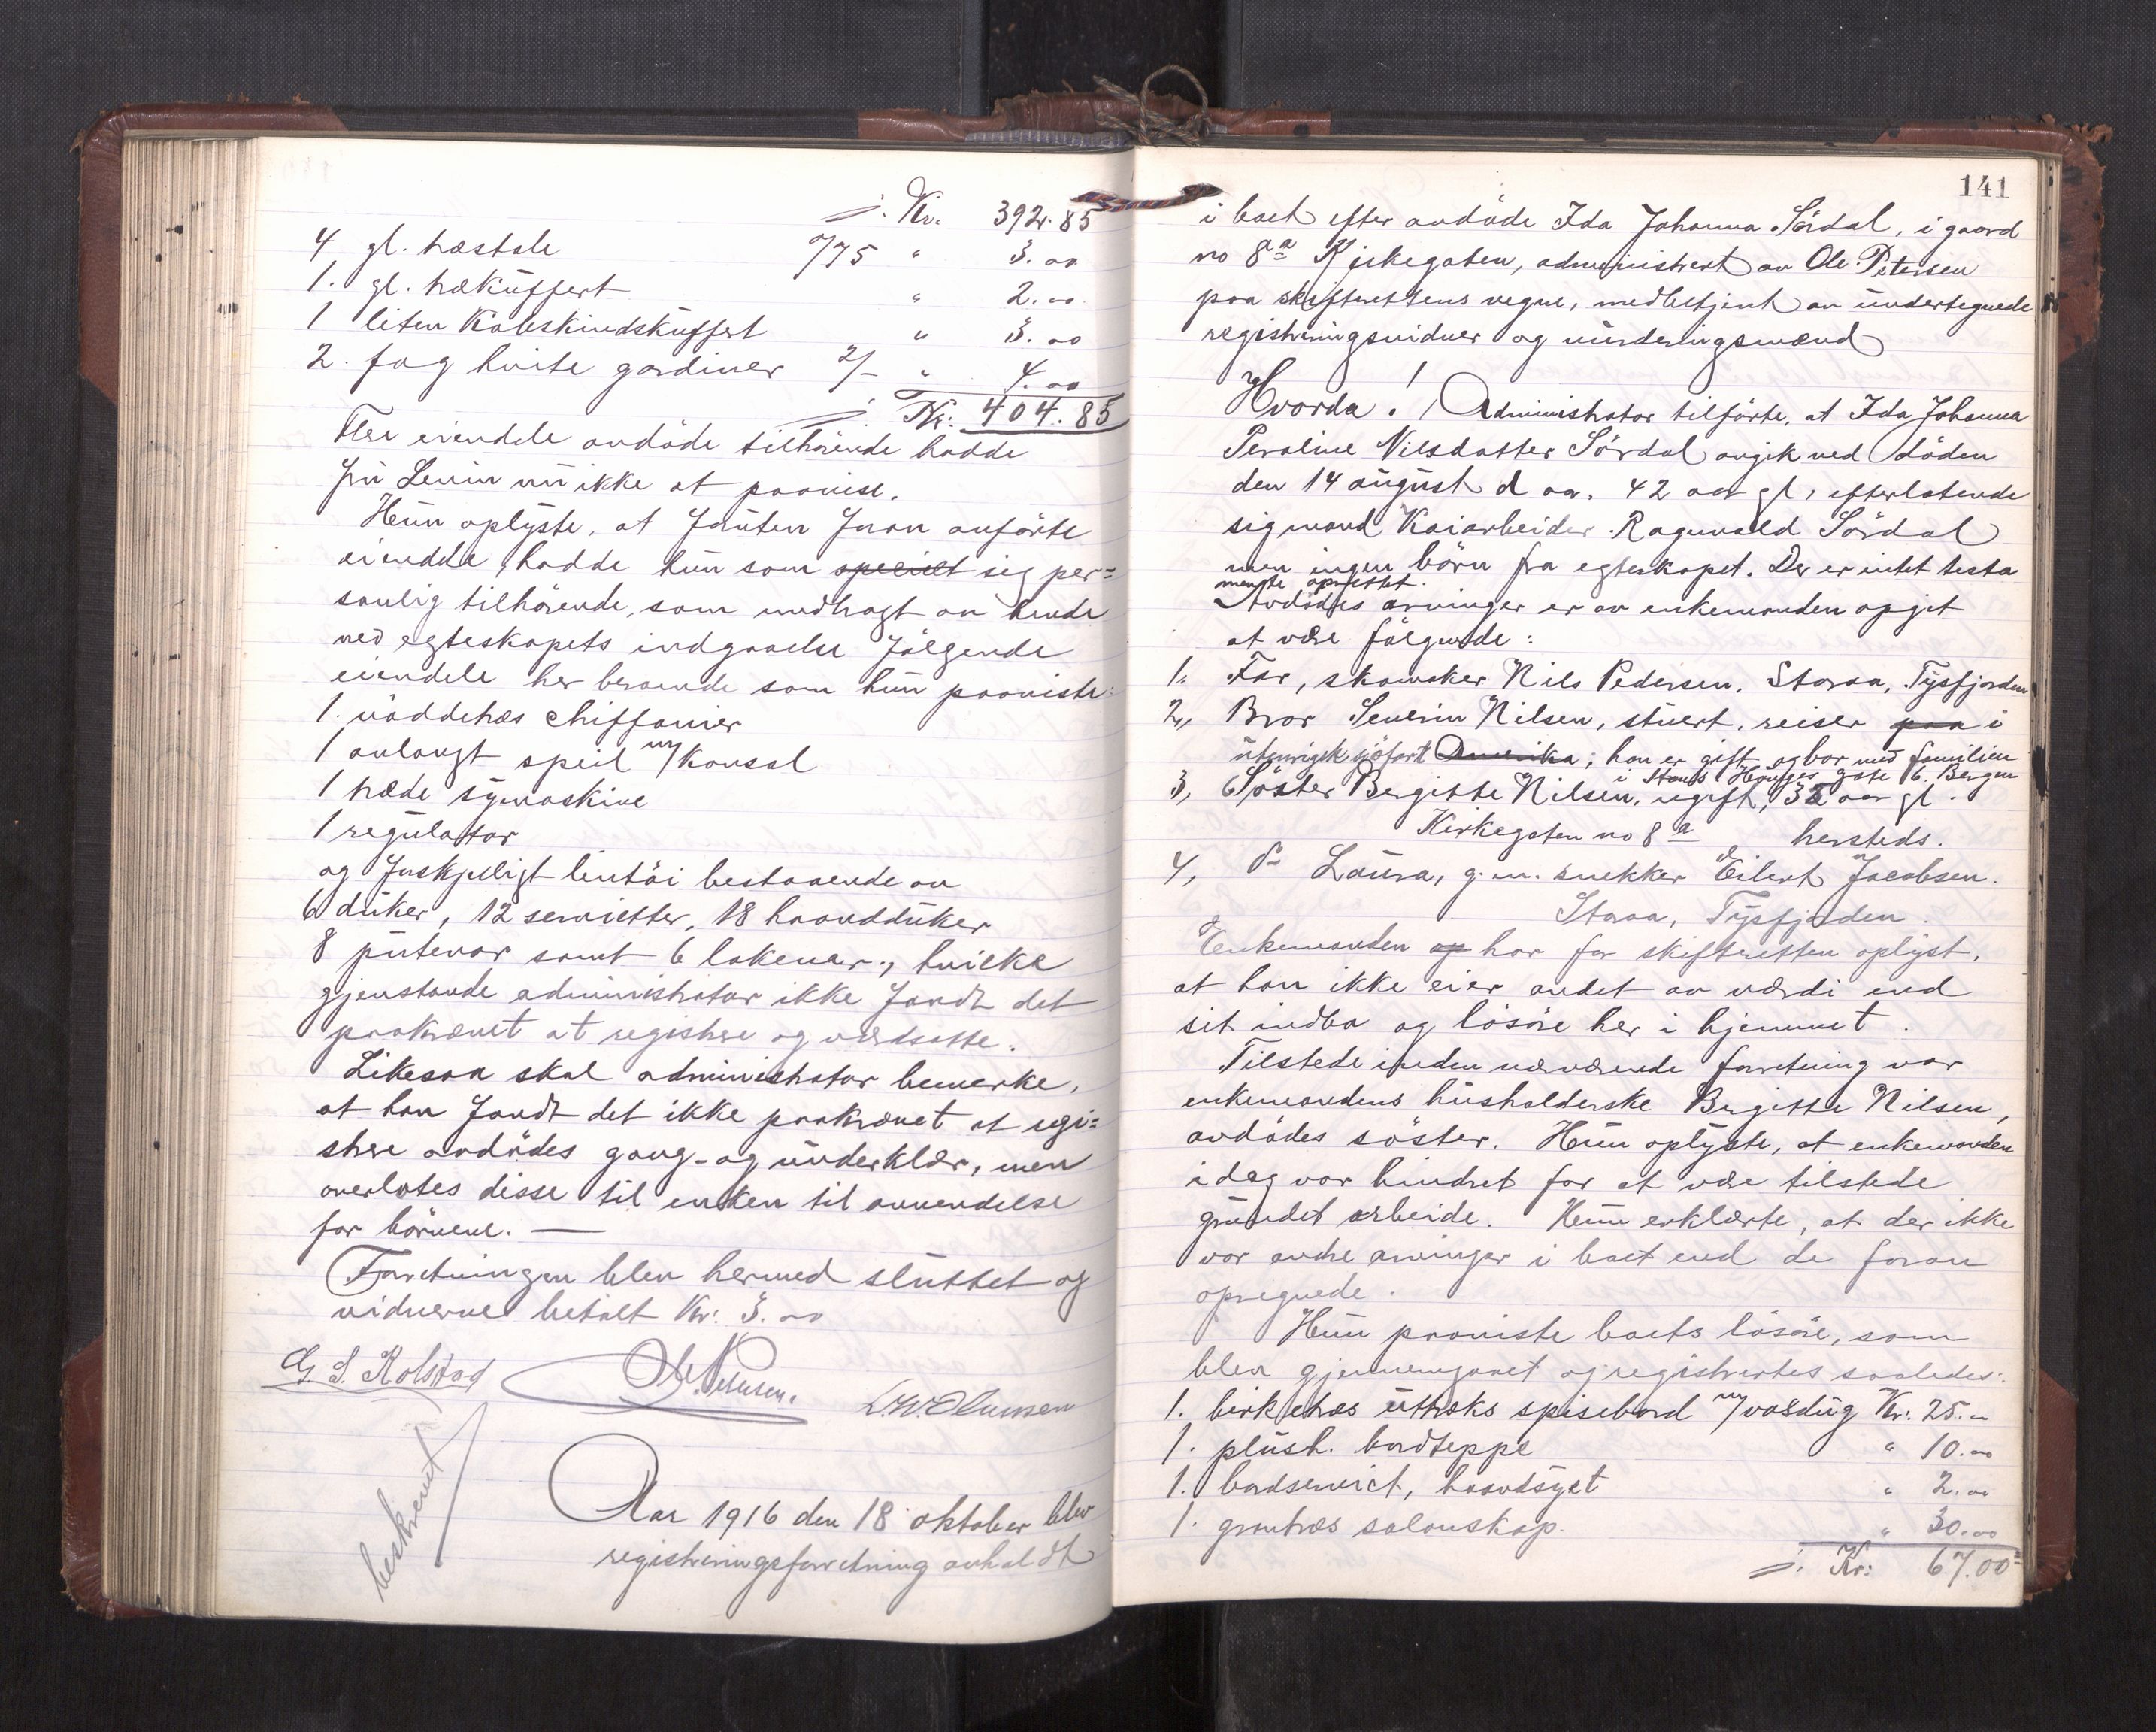 ∴ Kr. 392.85
4 gl. træstole à/75 " 3.00
1. gl. trækuffert " 2.00
1 liten Kobeskindskuffert " 3.00
2. fag hvite gardiner 2/- " 4.00
∴ Kr. 404.85
Flere eiendele avdøde tilhørende hadde
fru Levin nu ikke at paavise.
Hun oplyste, at foruten foran anførte
eiendele hadde hun som specielt sig per=
sonlig tilhørende, som medbragt av hende
ved egteskapets indgaaelse følgende
eiendele her beroende som hun paaviste:
1. nøddetræs chiffonier
1 avlangt speil m/ Konsol
1 træde symaskine
1 regulator
og forskjelligt lintøi bestaaende av
6 duker, 12 servietter, 18 haandduker
8 putevar samt 6 lakener, hvilke
gjenstande administrator ikke fandt det
paakrævet at registrere og værdsætte.
Likesaa skal administrator bemerke,
at han fandt det ikke paakrævet at regi=
strere avdødes gang- og underklær, men
overlotes disse til enken til anvendelse
for børnene. —
Forretningen blev hermed sluttet og
vidnerne betalt Kr. 3.00
G. S. Rolstad Ole Petersen. L. W. Olussen
beskrevet
Aar 1916 den 18 oktober blev
registreringsforretning avholdt
141
i boet efter avdøde Ida Johanna Sørdal, i gaard
no 8a Kirkegaten, administrert av Ole Petersen
paa skifterettens vegne, medbetjent av undertegnede
registreringsvidner og vurderingsmænd
Hvorda! Administrator tilførte, at Ida Johanna
Peroline Nilsdatter Sørdal avgik ved døden
den 14 august d aa. 42 aar gl, efterlatende
sig mand Kaiarbeider Ragnvald Sørdal
men ingen børn fra egteskapet. Der er intet testa
mente oprettet.
Avdødes arvinger er av enkemanden opgit
at være følgende:
1. Far, skomaker Nils Pedersen, Storaa, Tysfjorden
2, Bror Severin Nilsen, stuert, reiser paa i
utenrigsk sjøfart Amerika; han er gift og bor med familien
i gate 6. Bergen
3, Søster Bergitte Nilsen, ugift, 32 aar gl.
Kirkegaten no 8a hersteds.
4, do Laura, g. m. snekker Eilert Jacobsen.
Storaa, Tysfjorden.
Enkemanden op har for skifteretten oplyst,
at han ikke eier andet av værdi end
sit indbo og løsøre her i hjemmet.
Tilstede under nærværende forretning var
enkemandens husholderske Bergitte Nilsen,
avdødes søster. Hun oplyste, at enkemanden
idag var hindret for at være tilstede
grundet arbeide. Hun erklærte, at der ikke
var andre arvinger i boet end de foran
opregnede.
Hun paaviste boets løsøre, som
blev gjennemgaaet og registrertes saaledes:
1. birketræs uttræks spisebord m/ voksdug Kr. 25.00
1. plush. bordteppe " 10.00
1. bordserviet, haandsyet " 2.00
1. grantræs salonskap. " 30.00
∴ Kr: 67.00